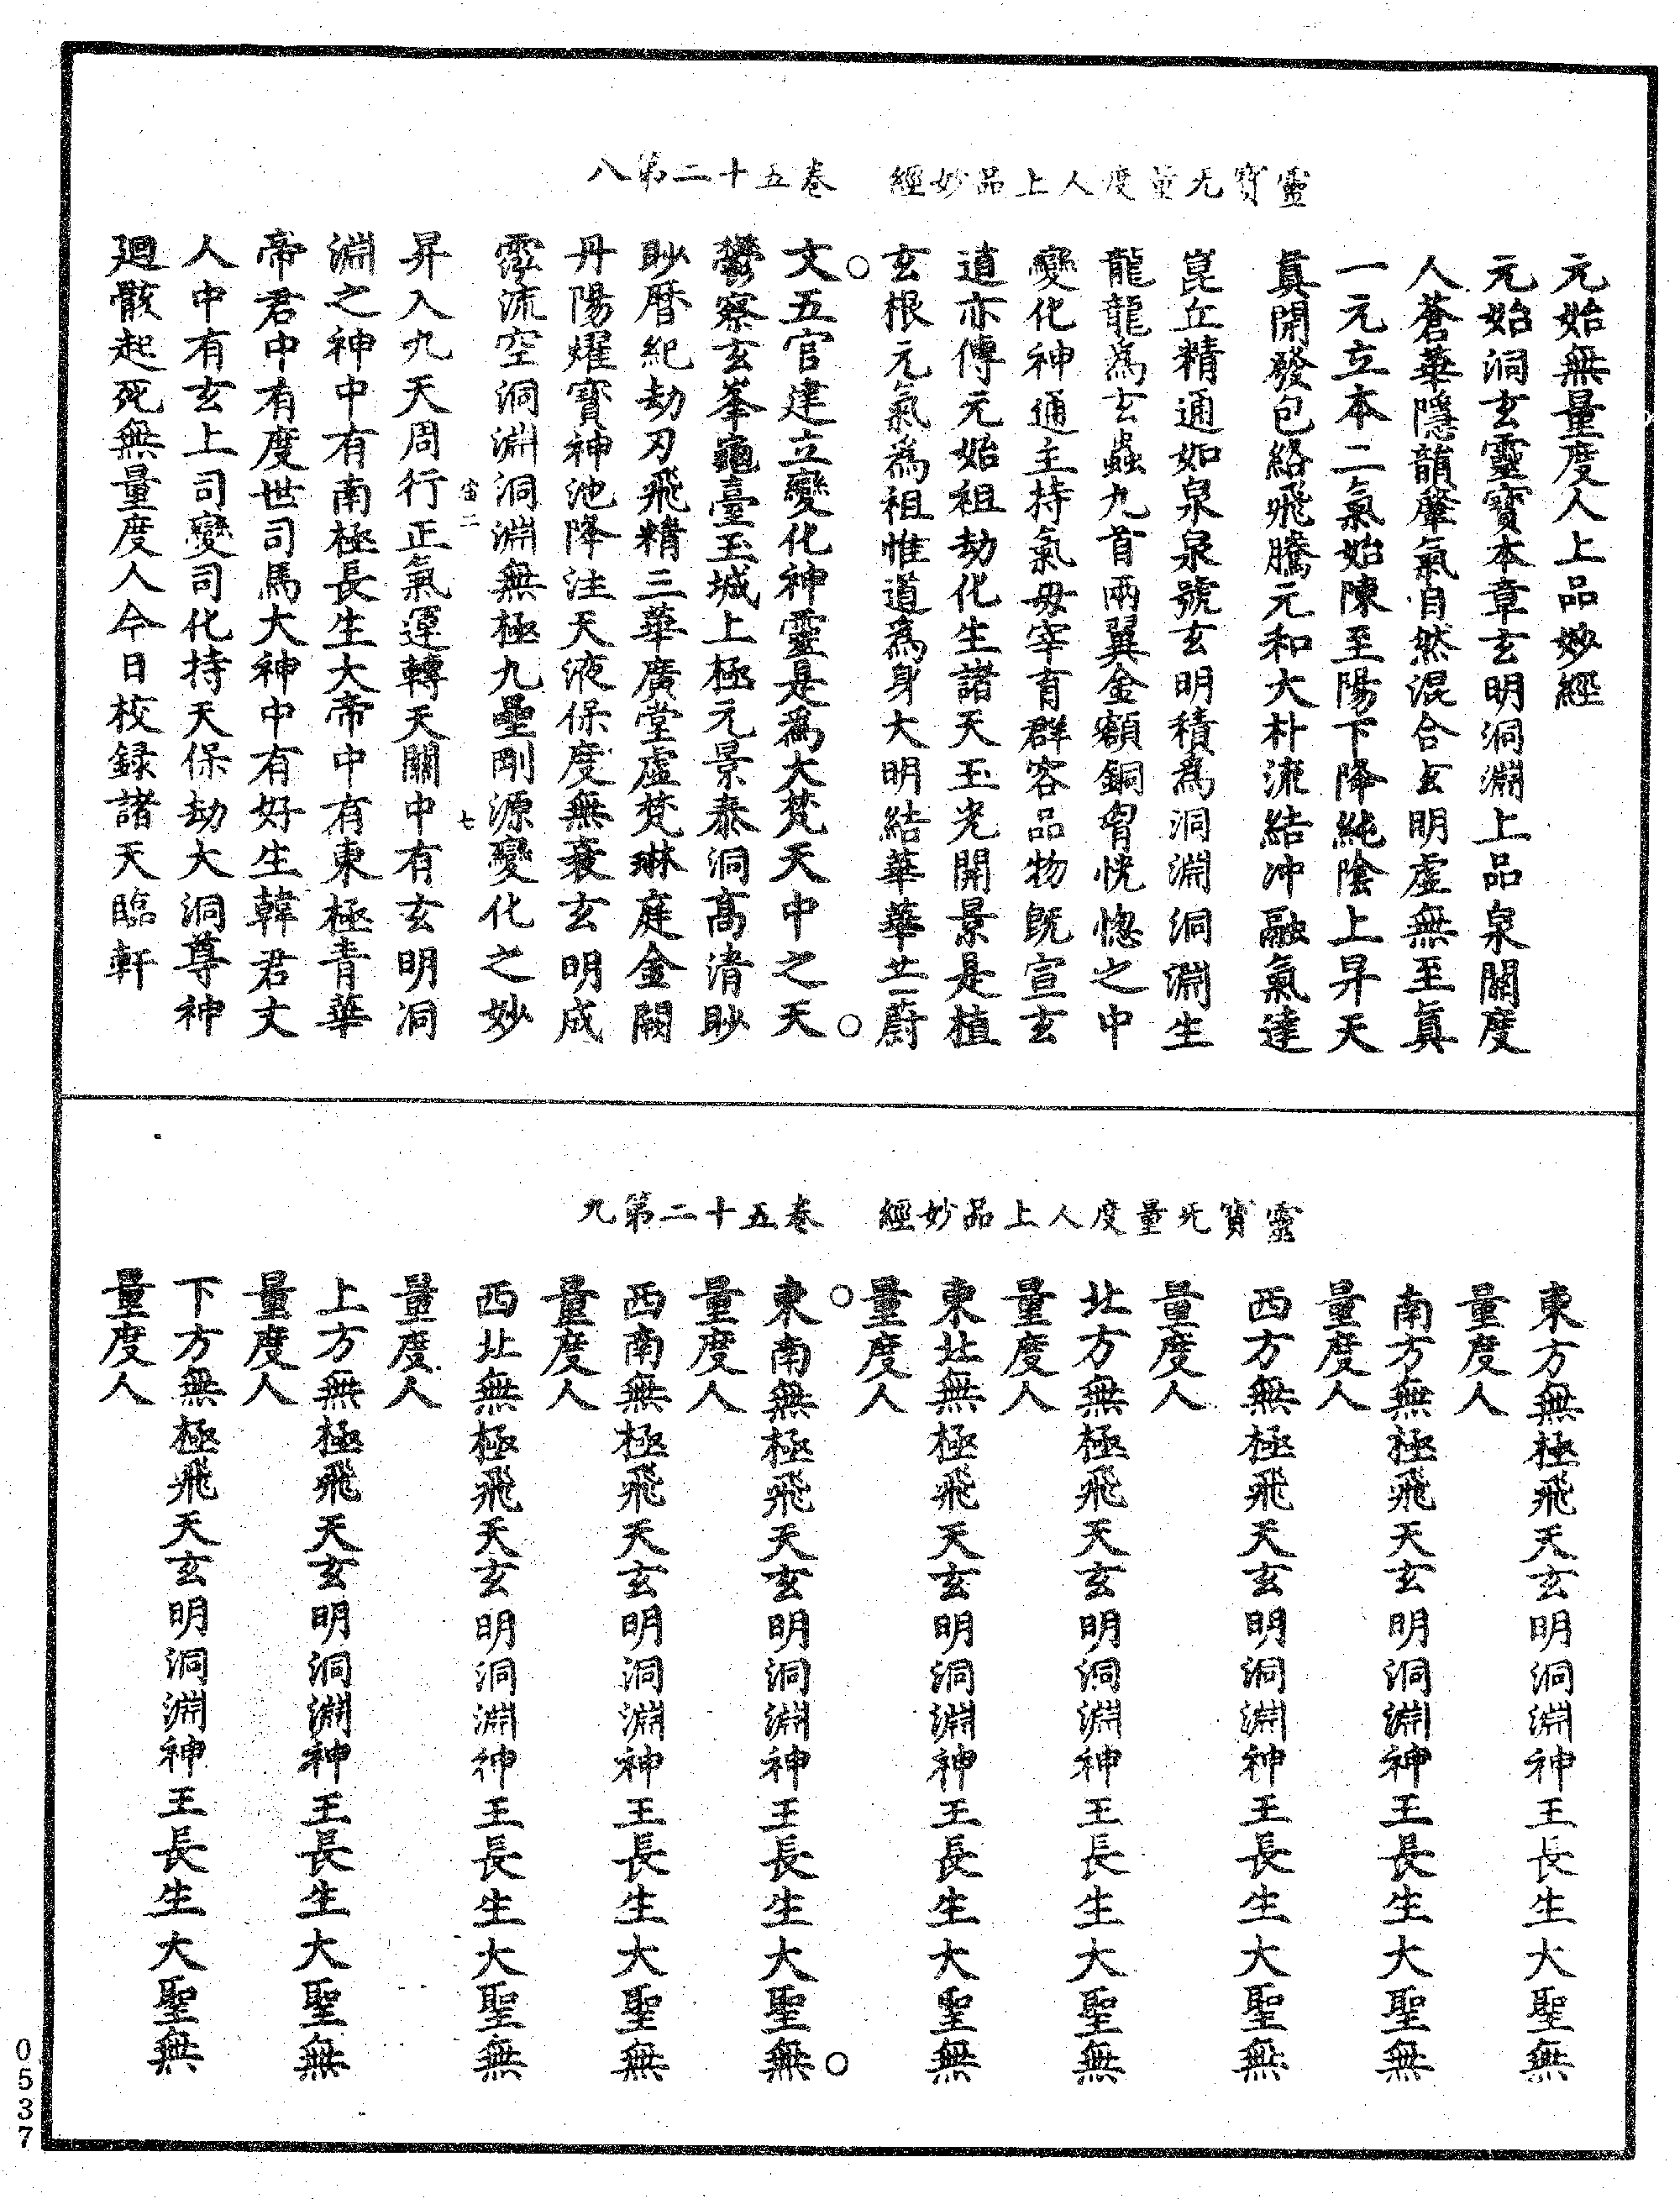 靈寶无量度人上品妙經　卷五十二第八
元始無量度人上品妙經
元始洞玄靈寶本章玄明洞淵上品泉開度
人蒼華隱龍肇氣自然混合玄明虛無至真
一元立本二氣始陳至陽下降純陰上昇天
真開發包絡飛騰元和大朴流結沖融氣達
崑丘精通如泉泉號玄明積為洞淵洞淵生
龍龍為玄蟲九首兩翼金額銅胷恍惚之中
變化神通主持氣毋宰育群容品物旣宣玄
道亦傳元始祖劫化生諸天玉光開景是植
玄根元氣為祖惟道為身大明結華華芒蔚
文五官建立變化神靈是爲大梵天中之天
鬱察玄峯龜臺玉城上極元景泰洞高清眇
眇曆紀劫刃飛精三華廣堂虛梵琳庭金闕
丹陽燿寶神池降注天液保度無衰玄明成
霐流空洞淵洞淵無極九壘剛源變化之妙
宙二　七
昇入九天周行正氣運轉天關中有玄明洞
淵之神中有南極長生大帝中有東極青華
帝君中有度世司馬大神中有好生韓君丈
人中有玄上司變司化持天保劫大洞尊神
廻骸起死無量度人今日校録諸天臨軒
靈寶无量度人上品妙經　卷五十二第九
東方無極飛天玄明洞淵神王長生大聖無
量度人
南方無極飛天玄明洞淵神王長生大聖無
量度人
西方無極飛天玄明洞淵神王長生大聖無
量度人
北方無極飛天玄明洞淵神王長生大聖無
量度人
東北無極飛天玄明洞淵神王長生大聖無
量度人
東南無極飛天玄明洞淵神王長生大聖無
量度人
西南無極飛天玄明洞淵神王長生大聖無
量度人
西北無極飛天玄明洞淵神王長生大聖無
量度人
上方無極飛天玄明洞淵神王長生大聖無
量度人
下方無極飛天玄明洞淵神王長生大聖無
量度人
0537